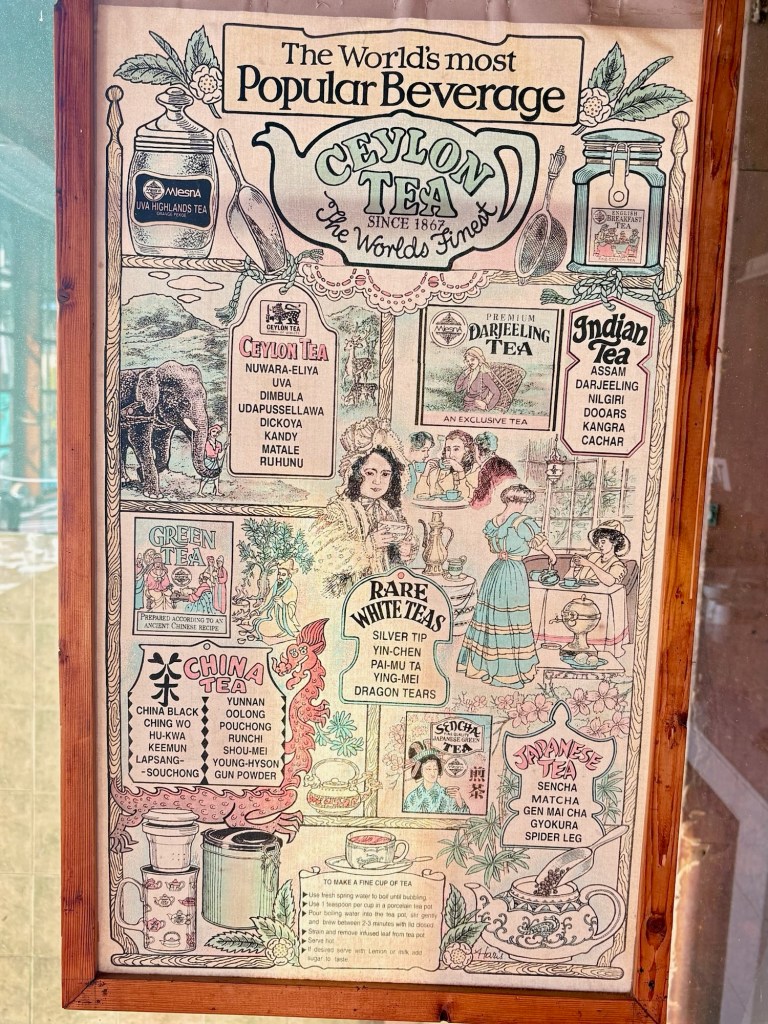 The World's most
Popular Beverage
CEYLON
TEA
SINCE 1867
The Worlds Finest
MlesnA
UVA HIGHLANDS TEA
ORANGE PEKOE
ENGLISH
BREAKFAST
TEA
CEYLON TEA
CEYLON TEA
NUWARA-ELIYA
UVA
DIMBULA
UDAPUSSELLAWA
DICKOYA
KANDY
MATALE
RUHUNU
PREMIUM
MlesnA
DARJEELING
TEA
AN EXCLUSIVE TEA
Indian
Tea
ASSAM
DARJEELING
NILGIRI
DOOARS
KANGRA
CACHAR
GREEN
TEA
PREPARED ACCORDING TO AN
ANCIENT CHINESE RECIPE
RARE
WHITE TEAS
SILVER TIP
YIN-CHEN
PAI-MU TA
YING-MEI
DRAGON TEARS
茶
CHINA
TEA
CHINA BLACK
CHING WO
HU-KWA
KEEMUN
LAPSANG-
-SOUCHONG
YUNNAN
OOLONG
POUCHONG
RUNCHI
SHOU-MEI
YOUNG-HYSON
GUN POWDER
SENCHA
JAPANESE GREEN
TEA
煎
茶
JAPANESE
TEA
SENCHA
MATCHA
GEN MAI CHA
GYOKURA
SPIDER LEG
TO MAKE A FINE CUP OF TEA
Use fresh spring water to boil until bubbling
Use 1 teaspoon per cup in a porcelain tea pot
Pour boiling water into the tea pot, stir gently
and brew between 2-3 minutes with lid closed
Strain and remove infused leaf from tea pot
Serve hot
If desired serve with Lemon or milk add
sugar to taste